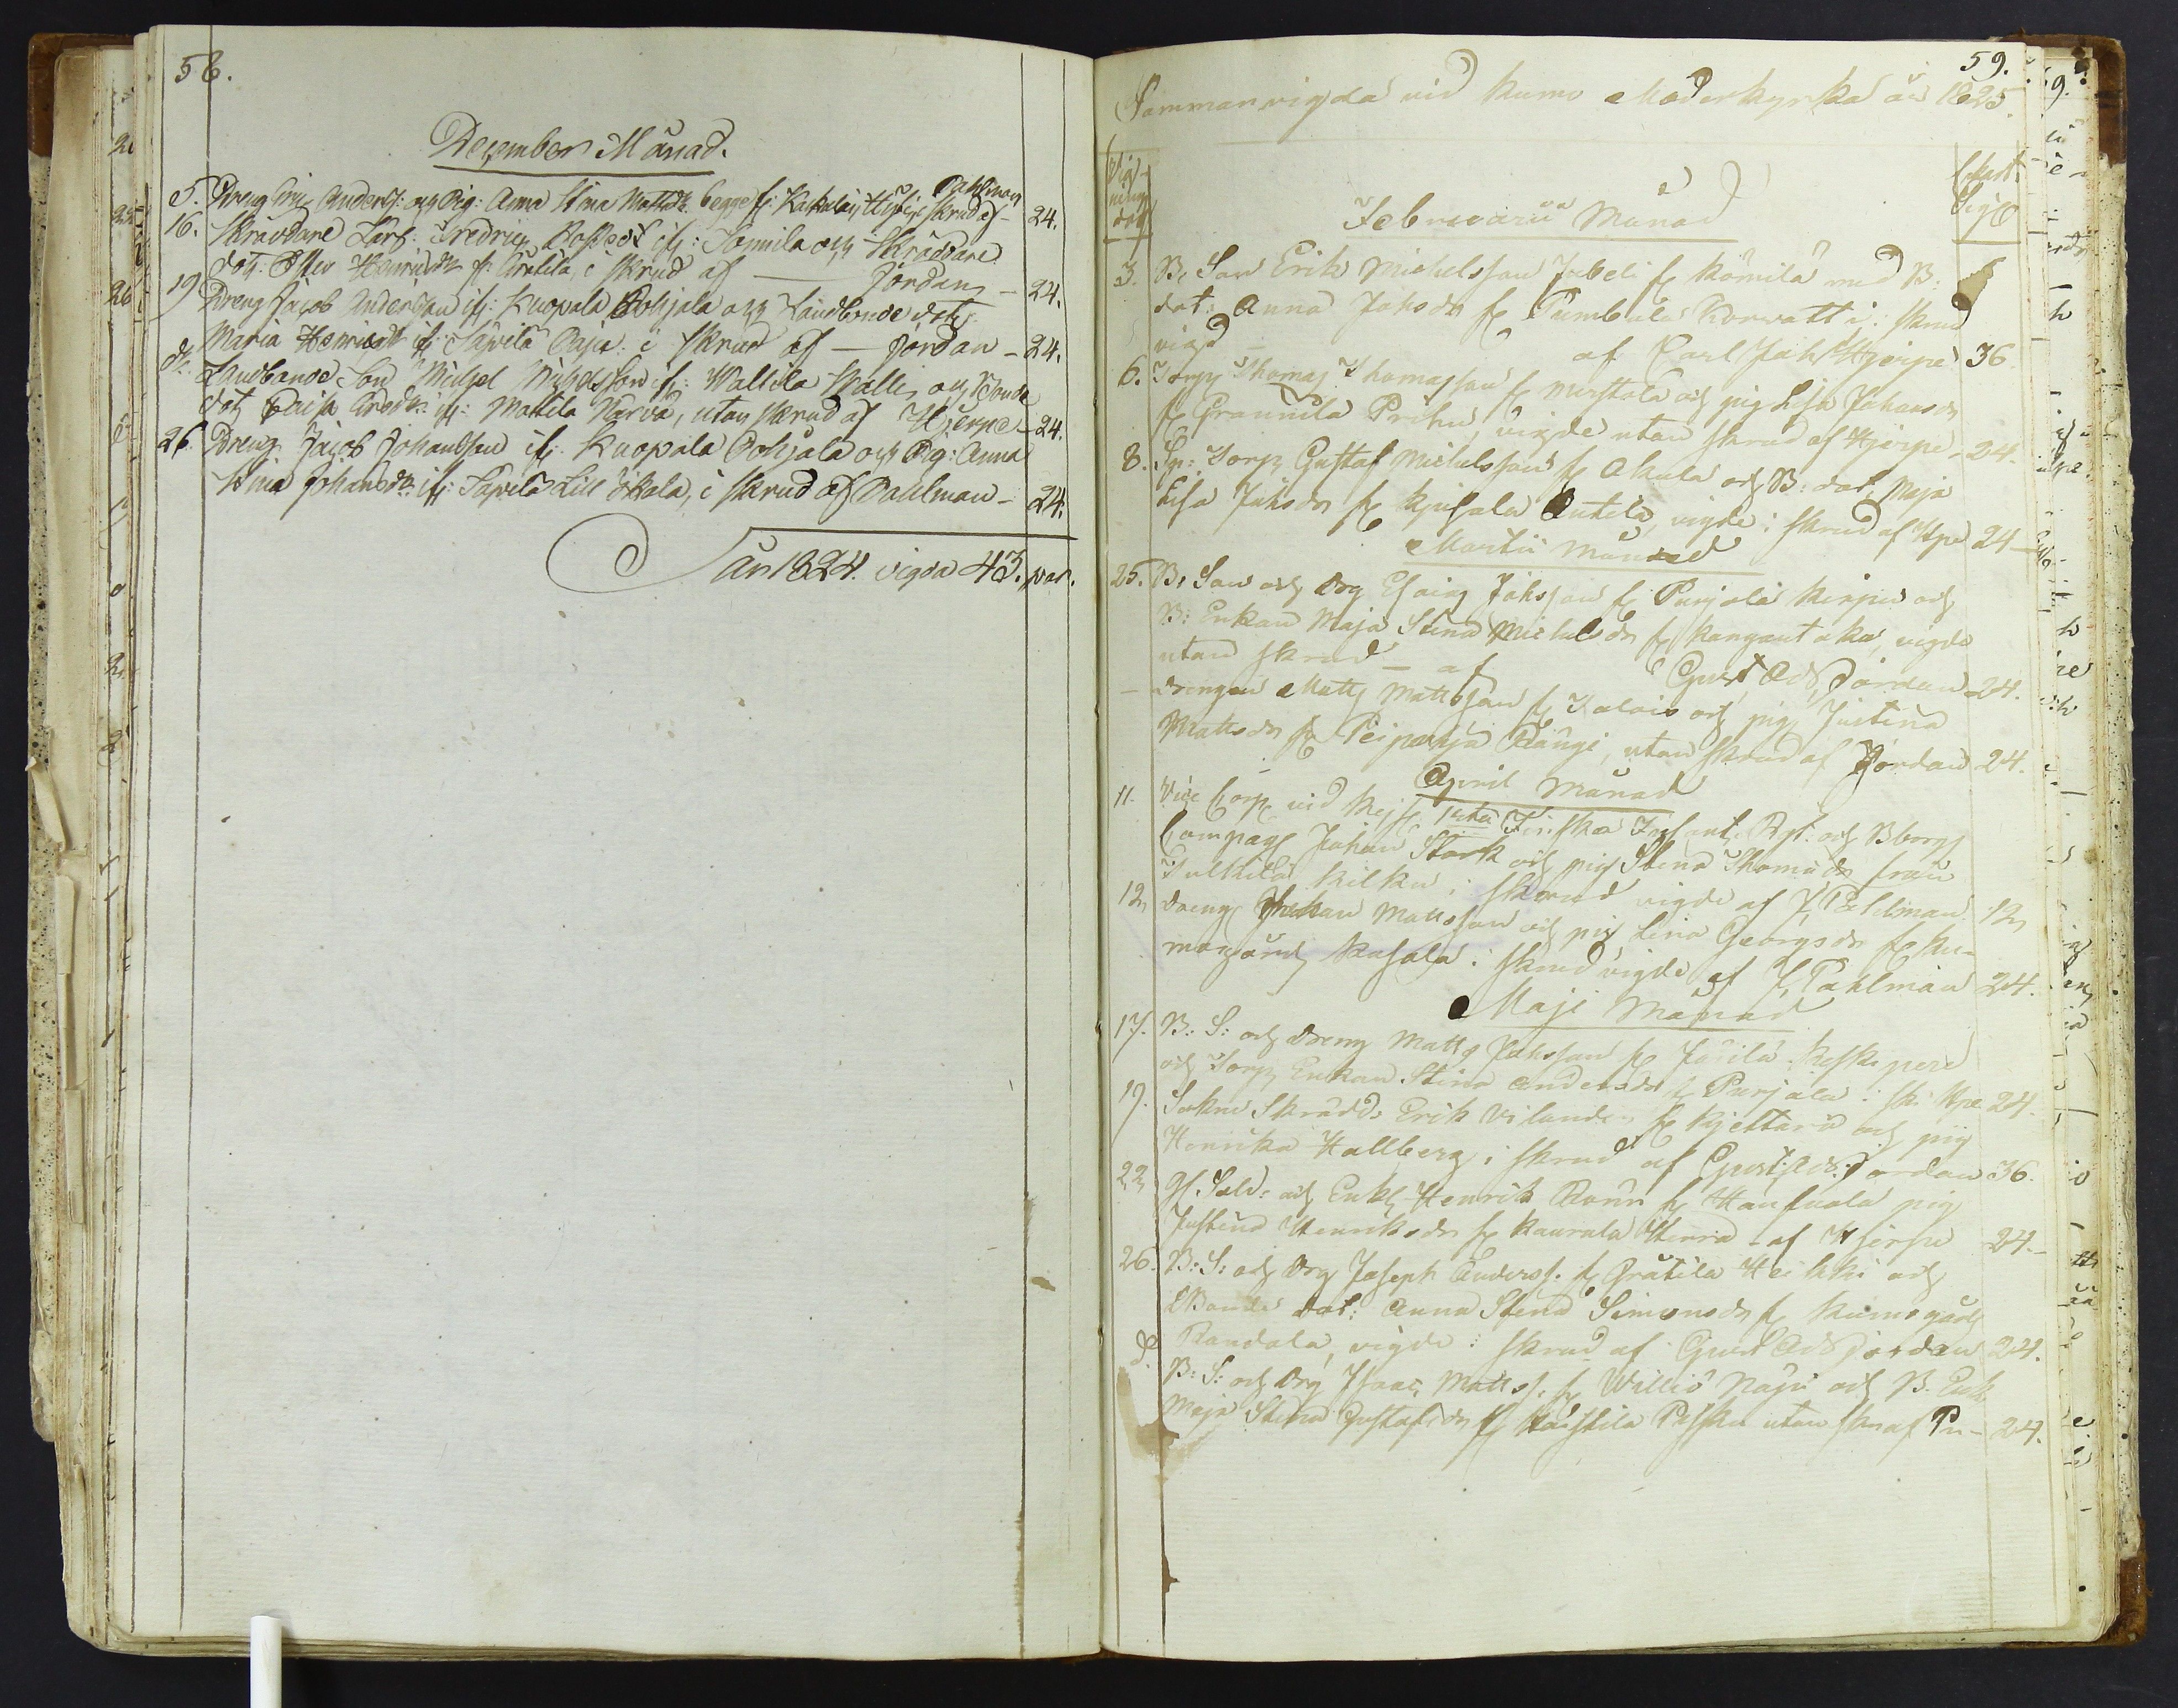 58.
December Månad.
5. Dreng Eric Anderss: och Pig: Anna Stina Mattsdr begge fr: Kakulais i skrud af Pahlman 24.
16. Skräddare Lärl: Fredric ifr: Sonnila och Skräddare
dotr. Ester Henricsdr fr: Gratila, i skrud af — Jordan — 24.
19 Dreng Jacob Andersson ifr: Kuopala Pohjala och Landbonde dotr
Maria Henricsdr ifr Säpilä Paja: i skrud af — Jordan — 24.
do Landbonde Son Michel Michelsson ifr: Wallila Walli och Bonde
dotr Caisa ifr: Mattila Kärvä, utan skrud af Hjerpe — 24.
26. Dreng Jacob Johansson ifr. Kuopala Pohjala och Pig: Anna
Stina Johansdr ifr: Säpilä Lill Skala, i skrud af Pahlman — 24.
År 1824. vigda 43. par.
59.
Sammanvigda vid Kumo Moderkyrka år 1825.
Vig-
nings
dag
Februarii Månad
3. B. Son Erik Michelsson Jubeli fr Kömilä med B:
dot: Anna Jakosdr fr Pumbula Korvatt i skrud
vigd af Carl Joh Hjerpe 36
6. Torp Thomas Thomasson fr och pig Lisa Johansdr
fr Grannila Prihu, vigde utan skrud af Hjerpe — 24.
8. Sp: Torp Gustaf Michelsson fr Akula och B: dot. Maja
Lisa Jaksdr fr Kjusala Antila, vigde i skrud af Hpe 24 —
Martii månad
25. B. Son och Drg Esaias Jakosson fr Purjala Keipis och
B: Enkan Maja Stina Michelsdr fr Kangantaka, vigde
utan skrud — af Gust Ad Jordan 24.
— drengen Matts Mattsson fr Talois och pig Justina
Mattsdr fr Peipohja Rängi, utan skrud af Jordan 24.
April månad
11. Vice Corp vid Kejs 1sta Finska Infant. Rgt. och Bborgs
Compagn Johan Stark och pig Stina Thomasdr från
Tulkila Kilku, i skrud vigde af J. Pahlman. 12
12 Dreng Johan Mattsson och pig Lena Georgsdr fr Ku-
mogård Kasala i skrud vigde af J. Pahlman 24.
Maji Månad
17. B: S: och Dreng Matts Jakosson fr Forsila Keskipere
och Torp Enkan Stina Andersdr fr Purjala i sk. Hpe 24.
19. Sokne Skrädd. Erik Vilander fr Kjettärä och pig
Henrika Hallberg i skrud af Gust: Ad: Jordan 36.
22 Gl. Sold: och Enkl Henrik Rönn fr Hanfuola pig
Justina Henriksdr fr Kaurula Henna — af Hjerpe 24. —
26. B: S: och Drg Joseph Anderss. fr Grätila Heikki och
LBonde dot: Anna Stina Simonsdr fr Kumogård
Randala, vigde i skrud af Gust Ad Jordan 24.
do B: S: och Drg Isaac Matts. fr Willio Näpi och B. Enk
Maja Stina Gustafsdr fr Kaistila Passku utan skr af Pn — 24.